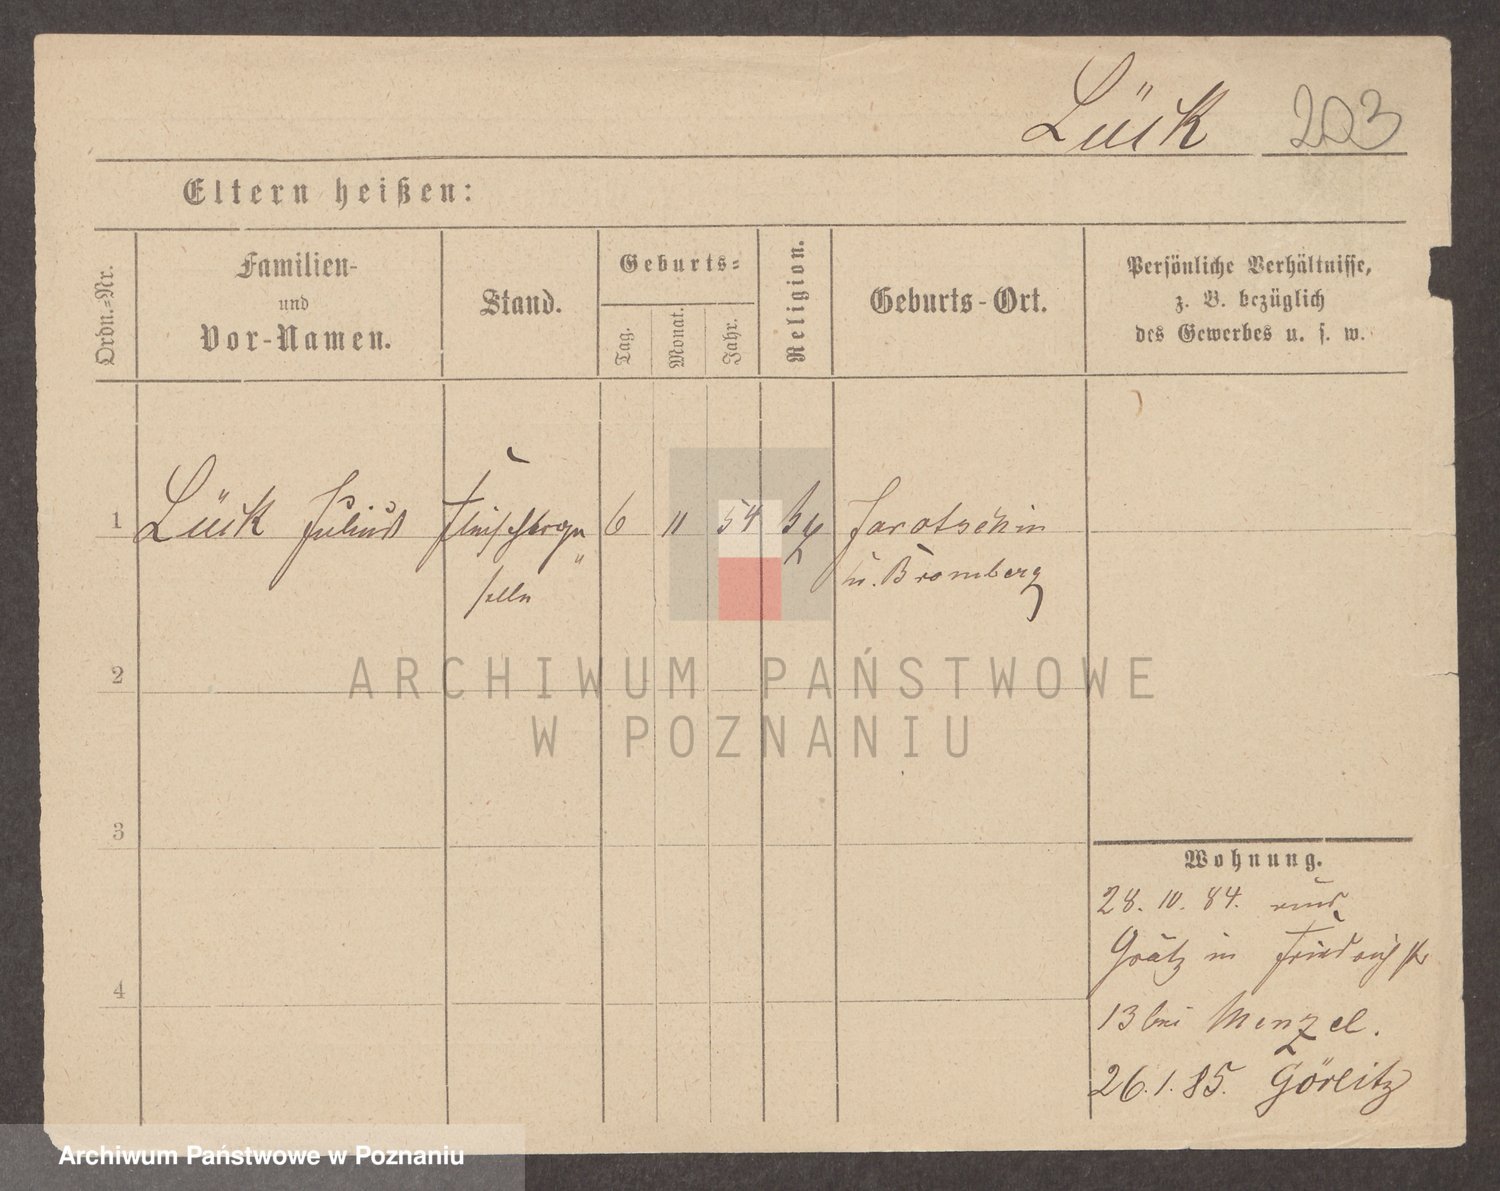 Lück 203
Eltern heißen:
Ordn.-Nr.
Familien-
und
Vor-Namen.
Stand.
Geburts-
Tag.
Monat.
Jahr.
Religion.
Geburts-Ort.
Persönliche Verhältnisse,
z. B. bezüglich
des Gewerbes u. s. w.
1 Lück Julius Fleischerge 6 11 54 Jarotschin
selle Bromberg
2
3
4
Wohnung.
28. 10. 84. aus
Grätz in Friedrichstr
13 bei Menzel.
26.1.85. Görlitz
ARCHIWUM PAŃSTWOWE
W POZNANIU
Archiwum Państwowe w Poznaniu